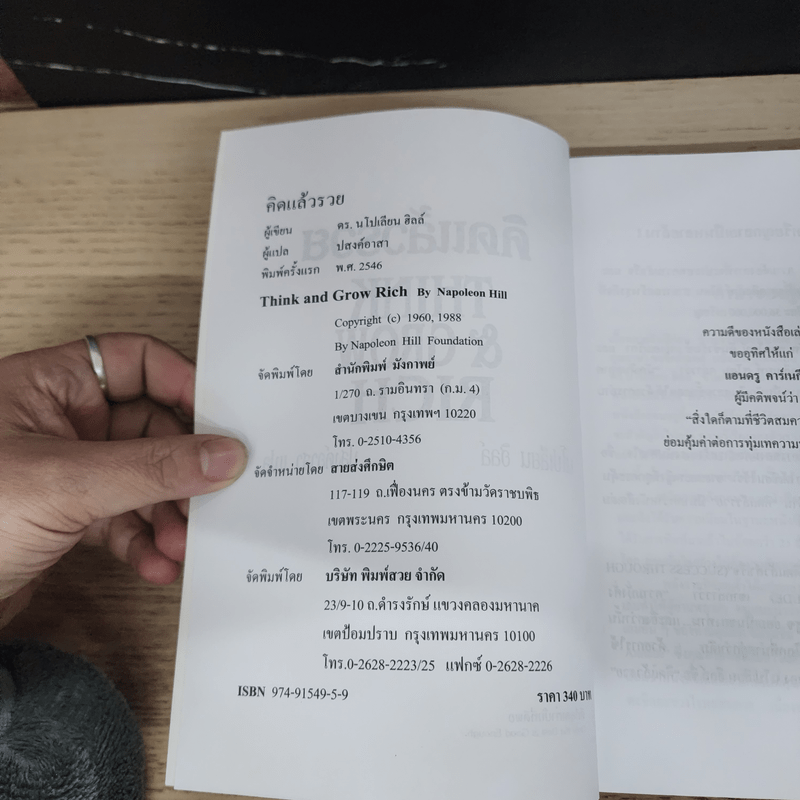 คิดแล้วรวย
ผู้เขียน ดร. นโปเลียน ฮิลล์
ผู้แปล ปสงค์อาสา
พิมพ์ครั้งแรก พ.ศ. 2546
Think and Grow Rich By Napoleon Hill
Copyright (c) 1960, 1988
By Napoleon Hill Foundation
จัดพิมพ์โดย สำนักพิมพ์ มังกาพย์
1/270 ถ. รามอินทรา (ก.ม. 4)
เขตบางเขน กรุงเทพฯ 10220
โทร. 0-2510-4356
จัดจำหน่ายโดย สายส่งศึกษิต
117-119 ถ.เฟื่องนคร ตรงข้ามวัดราชบพิธ
เขตพระนคร กรุงเทพมหานคร 10200
โทร. 0-2225-9536/40
จัดพิมพ์โดย บริษัท พิมพ์สวย จำกัด
23/9-10 ถ.ดำรงรักษ์ แขวงคลองมหานาค
เขตป้อมปราบ กรุงเทพมหานคร 10100
โทร.0-2628-2223/25 แฟกซ์ 0-2628-2226
ISBN 974-91549-5-9 ราคา 340 บาท
ความดีของหนังสือเล่
ขออุทิศให้แก่
แอนดรู คาร์เนกี
ผู้มีคติพจน์ว่า
"สิ่งใดก็ตามที่ชีวิตสมคว
ย่อมคุ้มค่าต่อการทุ่มเทความ